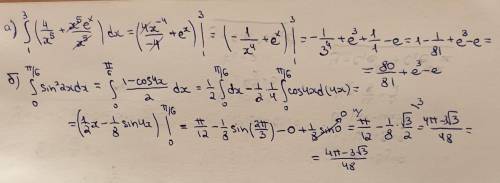 а) ∫₁³ (4/x⁵ + x⁵eˣ/x⁵) dx = (4x⁻⁴/-4 + eˣ)|₁³ = (-1/x⁴ + eˣ)|₁³ = -1/3⁴ + e³ + 1/1 - e = 1 - 1/81 + e³ - e =
= 80/81 + e³ - e
б) ∫₀^(π/6) sin²2xdx = ∫₀^(π/6) (1-cos4x)/2 dx = 1/2 ∫₀^(π/6) dx - 1/2 · 1/4 ∫₀^(π/6) cos4xd(4x) =
= (1/2 x - 1/8 sin4x)|₀^(π/6) = π/12 - 1/8 sin(2π/3) - 0 + 1/8 sin0 = π/12 - 1/8 · √3/2 = (4π - 3√3)/48 =
= (4π - 3√3)/48